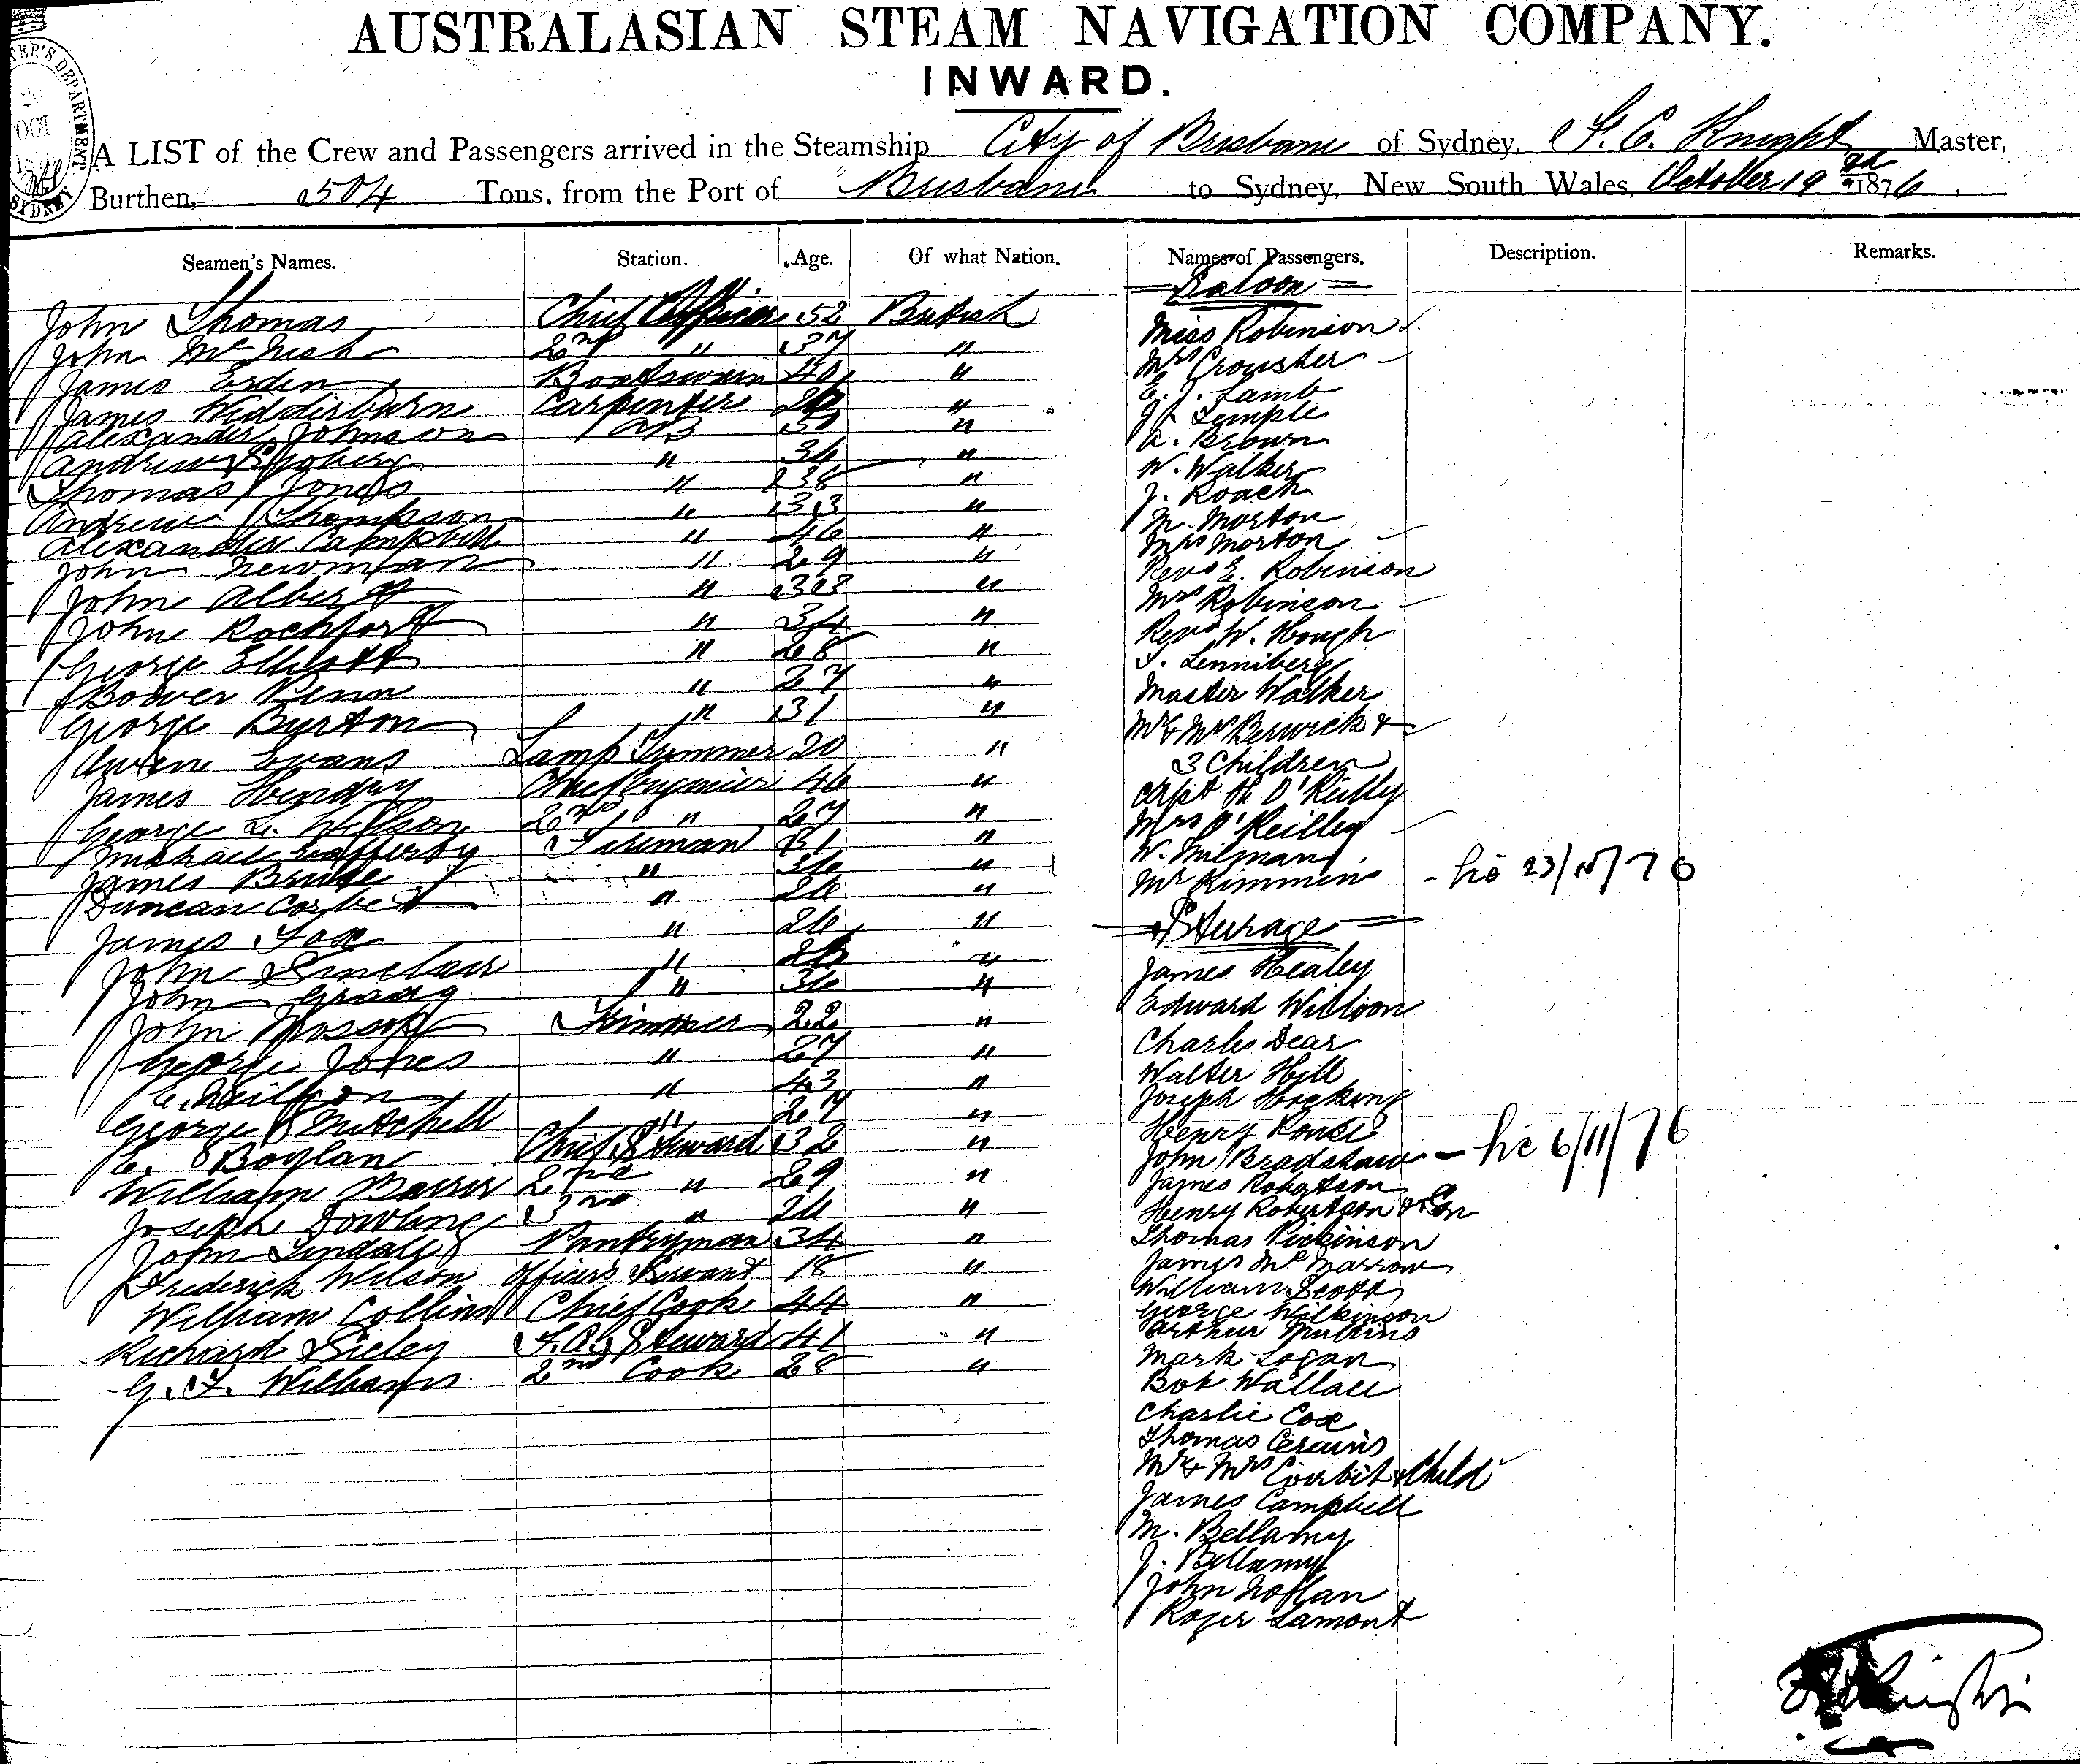 AUSTRALASIAN STEAM NAVIGATION COMPANY.
INWARD.
A LIST of the Crew and Passengers arrived in the Steamship City of Brisbane of Sydney, F. C. Knight Master,
Burthen, 504 Tons, from the Port of Brisbane to Sydney, New South Wales, October 19th 1876.
Seamen's Names. Station. Age. Of what Nation. Names of Passengers. Description. Remarks.
Saloon
John Thomas Chief Officer 52 British Miss Robinson
John McNish 2nd " 37 " Mrs Crouster
James Erdin Boatswain 40 " E. J. Lamb
James Widdirburn Carpenter " Temple
Alexander Johnson AB " A. Brown
Andrew 36 " W. Walker
Thomas Jones " 38 " J. Roach
Andrew Thompson " 33 " M. Morton
Alexander Campbell " 46 " Mrs Morton
John Newman " 29 " Revd E. Robinson
John Albert " 33 " Mrs Robinson
John Rochfort " 34 " Revd W. Hough
George Elliott " 28 " J. Lenniberg
Bower Penn " 27 " Master Walker
George Byrton " 31 " Mr & Mrs Berwick &
Owen Evans Lamp Trimmer 20 " 3 Children
James Hendry Chief Engineer 46 " Capt O'Reilly
George L. Willson 2nd " 27 " Mrs O'Reilley
Michael Lafferty Fireman 31 " W. Milman
James Bruce " 36 " Mr Kimmins
Duncan Corbett " 26 "
James Fox " 26 " Steerage
John Sinclair " " James Healey
John Graag " 36 " Edward Willson
John Mossop Trimmer 22 " Charles Dear
George Jones " 27 " Walter Hill
C. Neilson " 43 " Joseph Hocking
George Mitchell " 27 " Henry Rouse
E. Boylan Chief Steward 32 " John Bradshaw 6/11/76
William Barrir 2nd " 29 " James Robertson
Joseph Dowling 3rd " 26 " Henry Robertson & Son
John Tindall Pantryman 34 " Thomas Dickinson
Frederick Wilson Officer's Servant 18 " James McMarrow
William Collins Chief Cook 44 " William Scott
George Wilkinson
Richard Sieley F.C. Steward 41 " Arthur Mullins
G. F. Williams 2nd Cook 28 " Mark Logan
Bob Wallace
Charlie Cox
Thomas
Mr & Mrs Corbit & Child
James Campbell
M. Bellamy
J. Bellamy
John Nollan
Roger Lamont